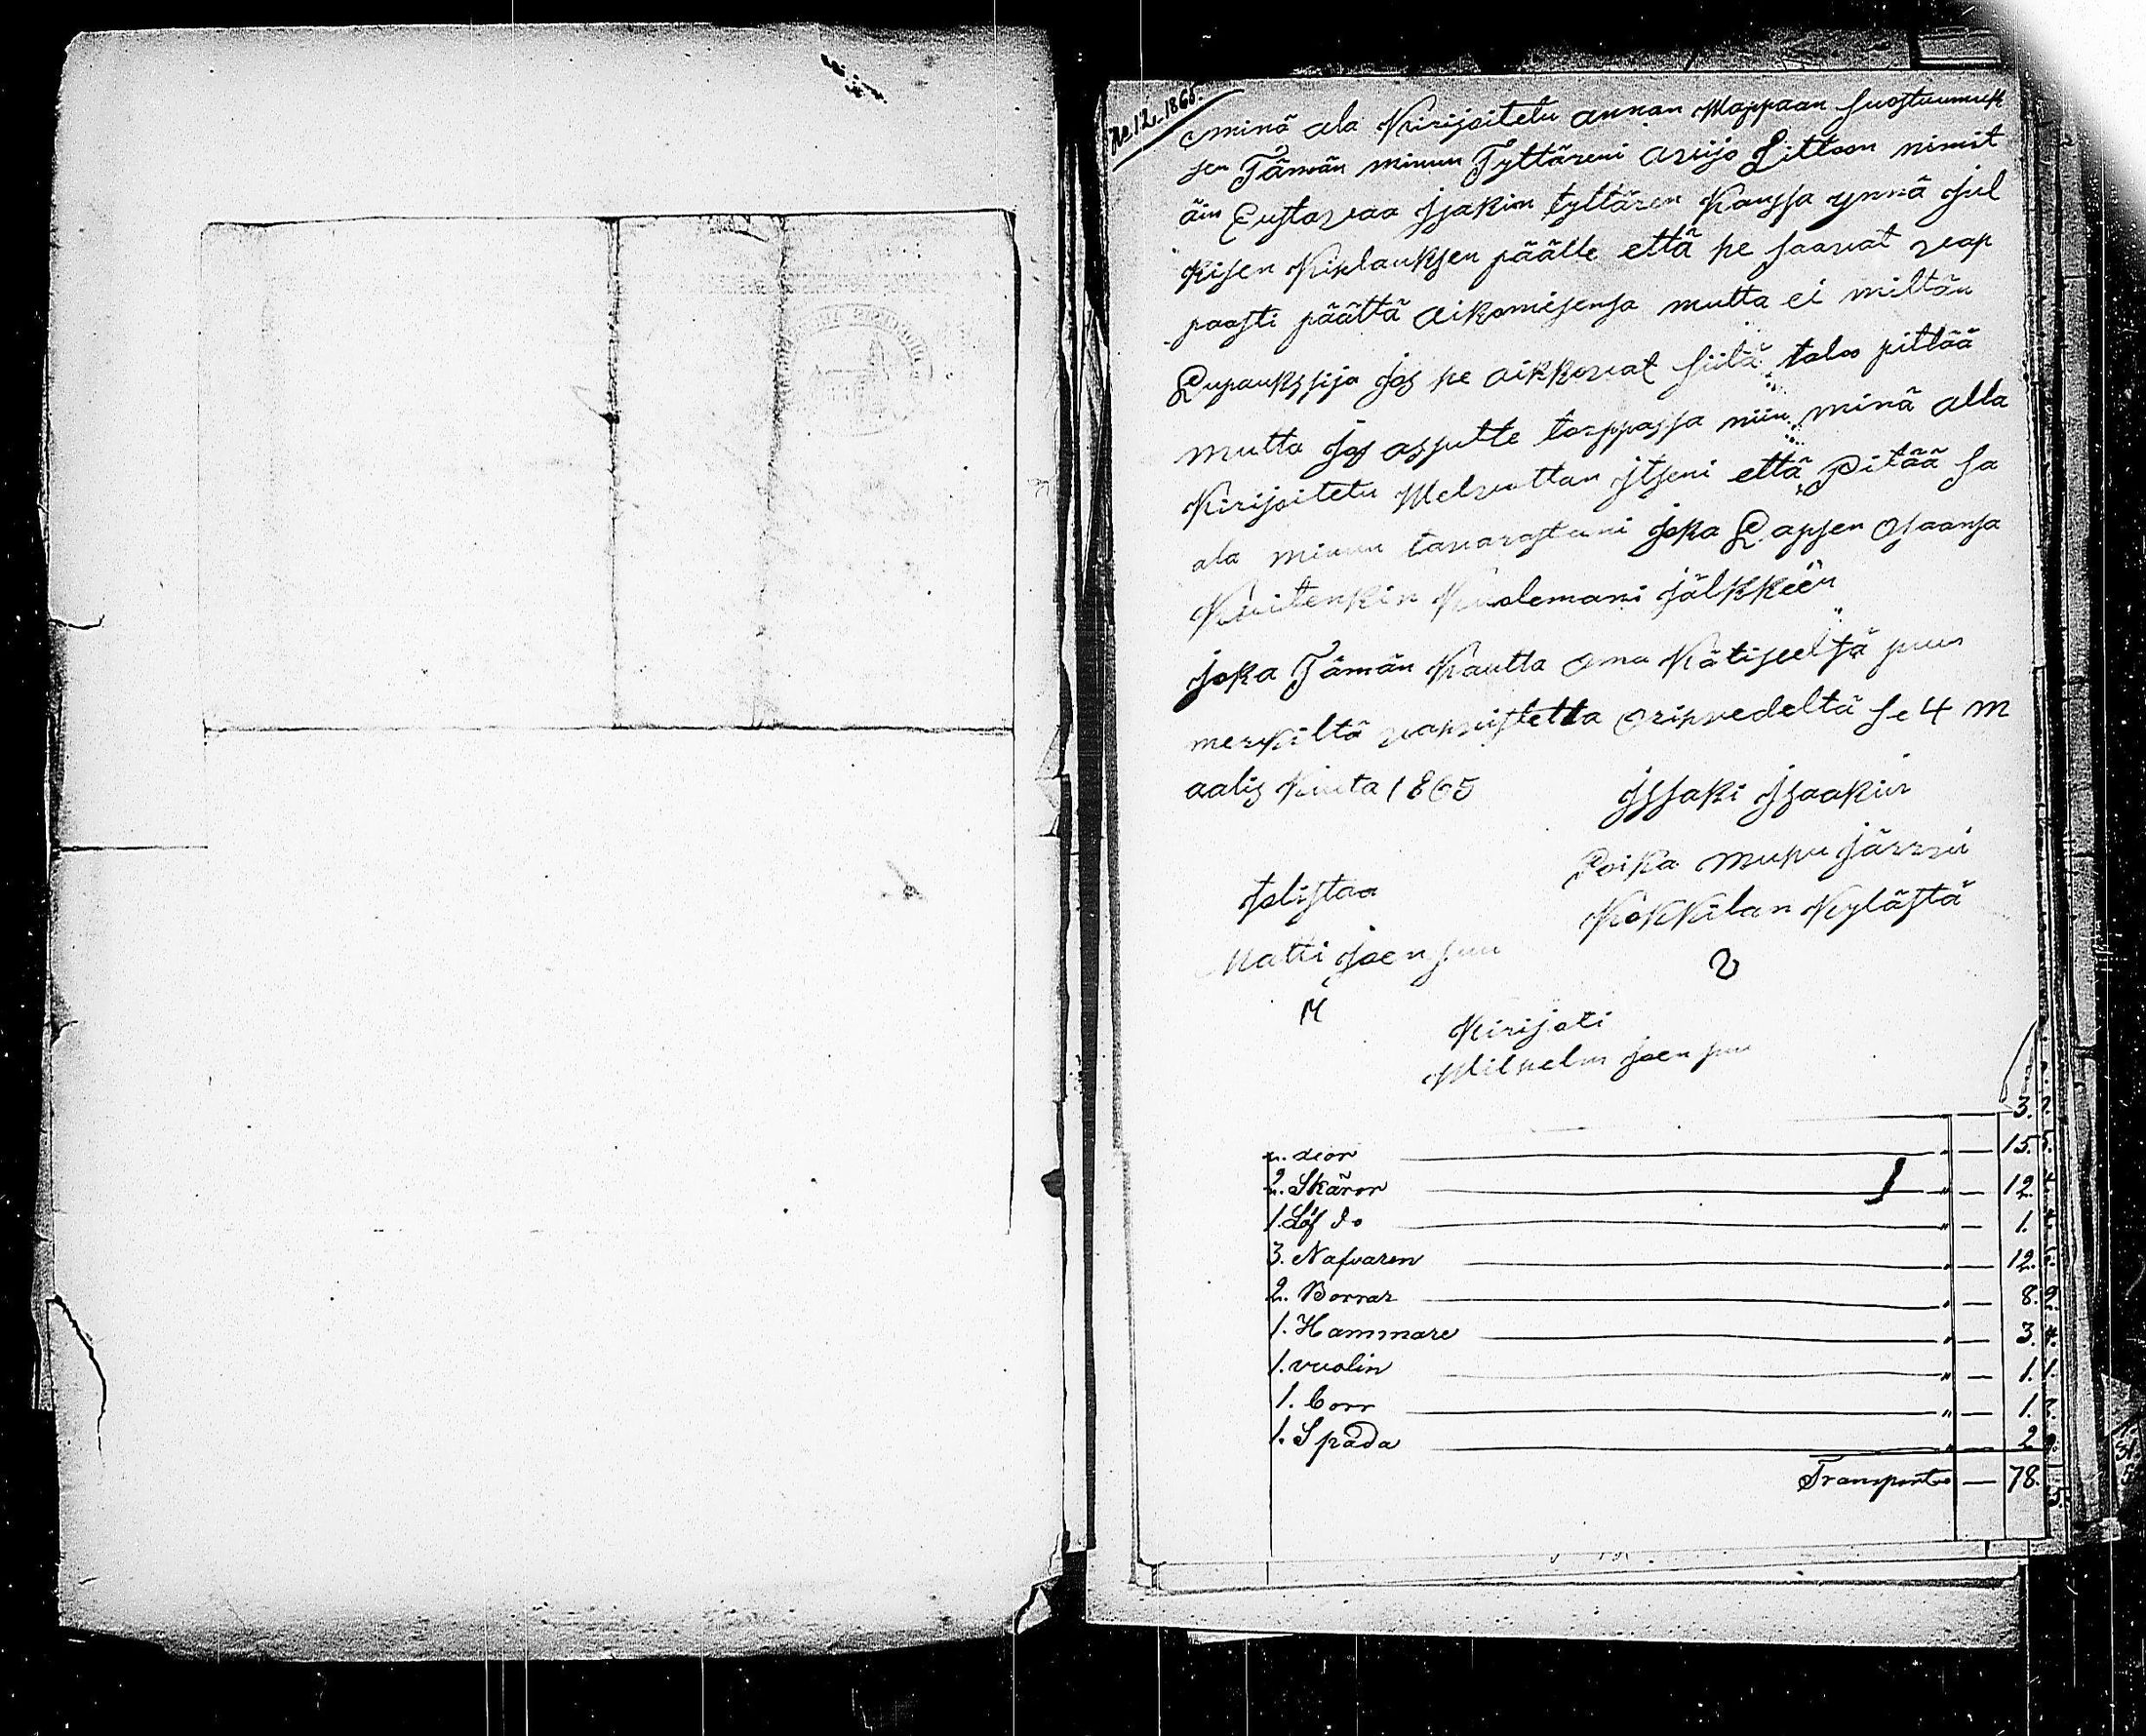 No 12. 1865.
minä ala Kirijoitetu annan Wappaan suostuumuk
sen Tämän minun Tyttäreni Aviijo Liittoon nimit
äin Eustaavaa Isakin tyltären Kanssa ynnä jul
kisen Kihlauksen päälle että he saavat vap
paasti päättä aikomisensa mutta ei miltän
Lupaukssija jos he aikkovat siitä talos pittää
mutta jos assutte torppassa niin minä alla
Kirijoitetu Welvottan itseni että pitää sa
ala minun tavarastani joka Lapsen osaansa
Kuitenkin Kuolemani jälkkeën
joka Tämän Kautta oma Kätiseeltä puu
merkiltä vahvistetta oripvedeltä se 4 m
aalis Kuuta 1865
Issaki Isaakin
Poika muhu järvvi
Kokkilan Kylästä
tolistaa
Matti Joensuu
M
Kirijoti
Wilhelm Joensuu
3.
dior " — 15.
2. Skäror " — 12
1. Löf do " — 1.
3. Nafvaren " — 12.
2. Borrar " — 8.
1. Hammare " — 3.
1. vuolin " — 1.
1. Corr " — 1.
1. Spada " — 2
Transport — 78.